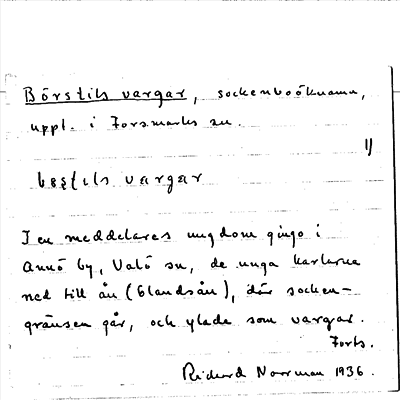 Börstils vargar, sockenboöknamn,
uppt. i Forsmarks sn.
1)
bestils vargar
I en meddelares ungdom gingo i
Annö by, Valö sn, de unga karlarna
ned till ån (Olandsån), där socken-
gränsen går, och ylade som vargar.
Forts.
Richard Norrman 1936.